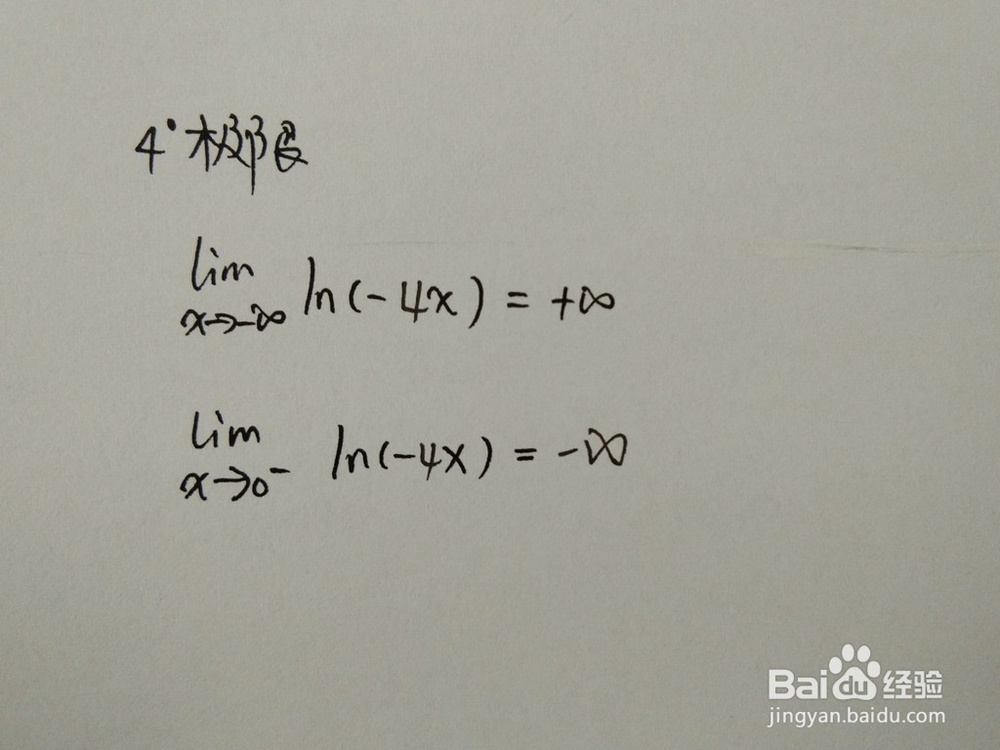 4°极限
lim ln(-4x) = +∞
x→-∞
lim ln(-4x) = -∞
x→0⁻
Baidu经验
jingyan.baidu.com